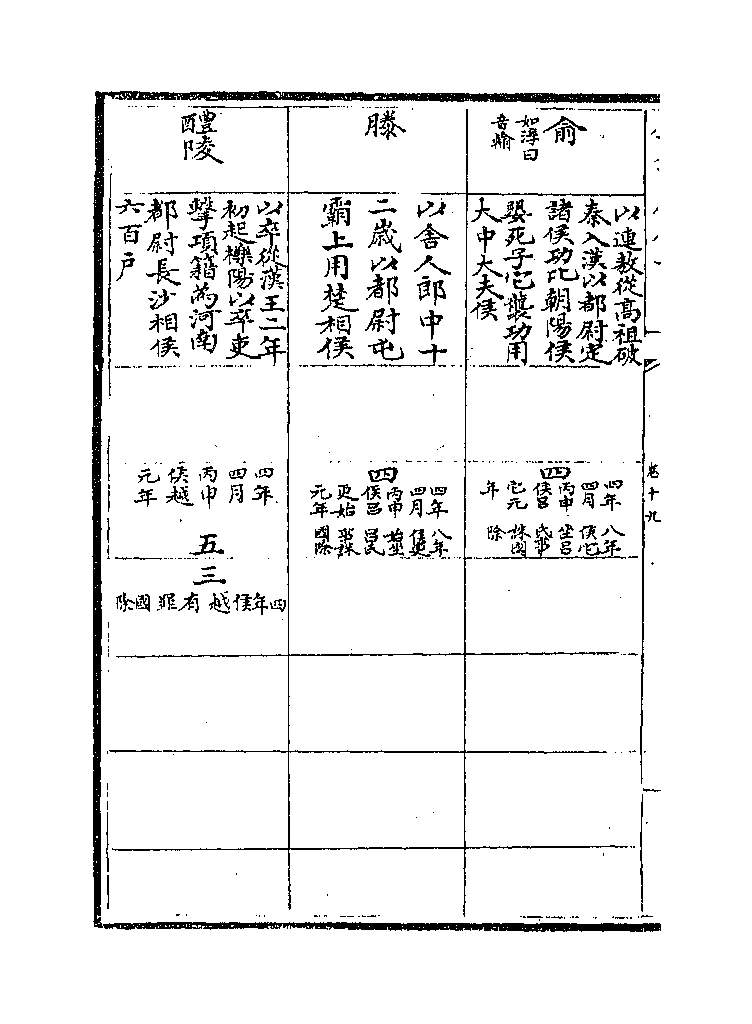 俞
如淳曰
音輸
以連敖從高祖破
秦入漢以都尉定
諸侯功比朝陽侯
嬰死子它襲功用
大中大夫侯
四
四年
四月
丙申
侯呂
它元
年
八年
侯它
坐呂
氏事
誅國
除
滕
以舍人郎中十
二歲以都尉屯
霸上用楚相侯
四
四年
四月
丙申
侯呂
更始
元年
八年
侯更
始坐
呂氏
事誅
國除
醴陵
以卒從漢王二年
初起櫟陽以卒吏
擊項籍為河南
都尉長沙相侯
六百戶
四年
四月
丙申
侯越
元年
五
三
四年侯越有罪國除
卷十九